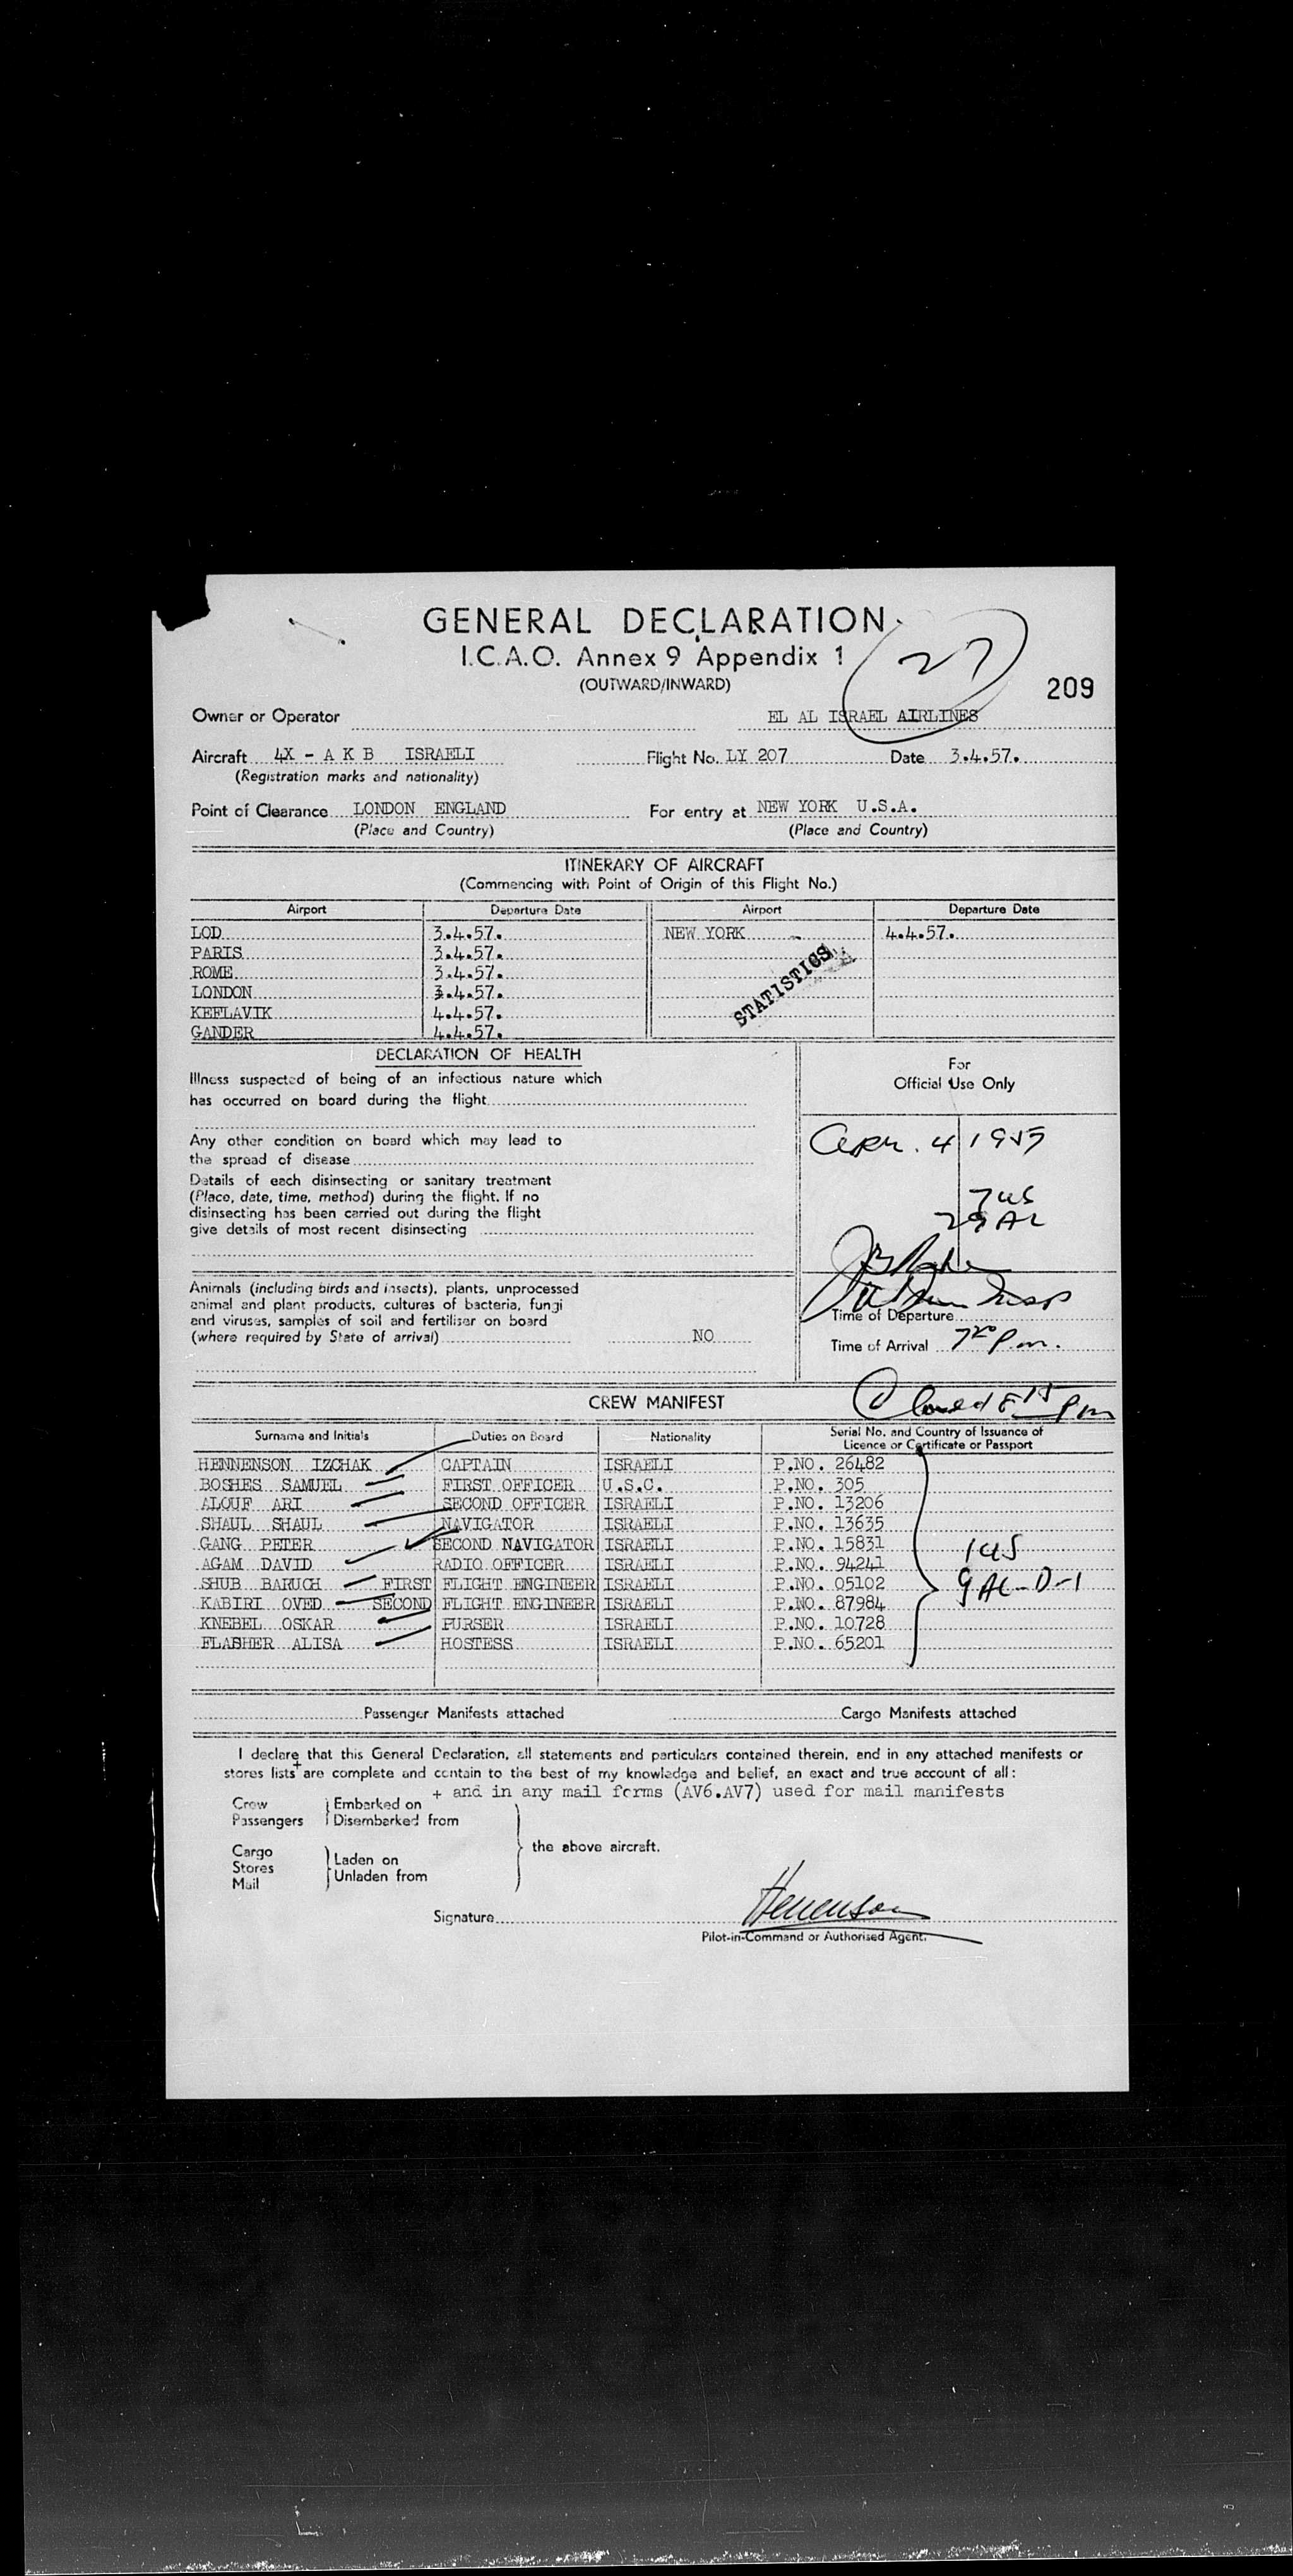 GENERAL DECLARATION
I.C.A.O. Annex 9 Appendix 1
(OUTWARD/INWARD)
27
209
Owner or Operator EL AL ISRAEL AIRLINES
Aircraft 4X - A K B ISRAELI Flight No. LY 207 Date 3.4.57.
(Registration marks and nationality)
Point of Clearance LONDON ENGLAND For entry at NEW YORK U.S.A.
(Place and Country) (Place and Country)
ITINERARY OF AIRCRAFT
(Commencing with Point of Origin of this Flight No.)
Airport Departure Date Airport Departure Date
LOD 3.4.57. NEW YORK 4.4.57.
PARIS 3.4.57.
ROME 3.4.57.
LONDON 3.4.57.
KEFLAVIK 4.4.57.
GANDER 4.4.57.
STATISTICS
DECLARATION OF HEALTH
Illness suspected of being of an infectious nature which
has occurred on board during the flight
Any other condition on board which may lead to
the spread of disease
Details of each disinsecting or sanitary treatment
(Place, date, time, method) during the flight. If no
disinsecting has been carried out during the flight
give details of most recent disinsecting
For
Official Use Only
Apr. 4 1957
7 US
29 AL
Animals (including birds and insects), plants, unprocessed
animal and plant products, cultures of bacteria, fungi
and viruses, samples of soil and fertiliser on board
(where required by State of arrival) NO
Time of Departure
Time of Arrival 7 20 p.m.
Closed 8 15 pm
CREW MANIFEST
Surname and Initials Duties on Board Nationality Serial No. and Country of Issuance of
Licence or Certificate or Passport
HENNENSON IZCHAK CAPTAIN ISRAELI P.NO. 26482
BOSHES SAMUEL FIRST OFFICER U.S.C. P.NO. 305
ALOUF ARI SECOND OFFICER ISRAELI P.NO. 13206
SHAUL SHAUL NAVIGATOR ISRAELI P.NO. 13635
GANG PETER SECOND NAVIGATOR ISRAELI P.NO. 15831
AGAM DAVID RADIO OFFICER ISRAELI P.NO. 94241
SHUB BARUCH FIRST FLIGHT ENGINEER ISRAELI P.NO. 05102
KABIRI OVED SECOND FLIGHT ENGINEER ISRAELI P.NO. 87984
KNEBEL OSKAR PURSER ISRAELI P.NO. 10728
FLASHER ALISA HOSTESS ISRAELI P.NO. 65201
1 US
9 AL-D-1
Passenger Manifests attached Cargo Manifests attached
I declare that this General Declaration, all statements and particulars contained therein, and in any attached manifests or
stores lists + are complete and contain to the best of my knowledge and belief, an exact and true account of all:
+ and in any mail forms (AV6.AV7) used for mail manifests
Crew Embarked on
Passengers Disembarked from
the above aircraft.
Cargo
Stores Laden on
Mail Unladen from
Signature Hennenson
Pilot-in-Command or Authorised Agent.